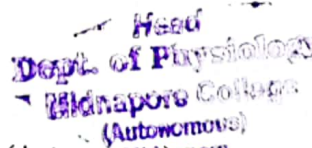 Head
Dept. of Physiology
Midnapore College
(Autonomous)